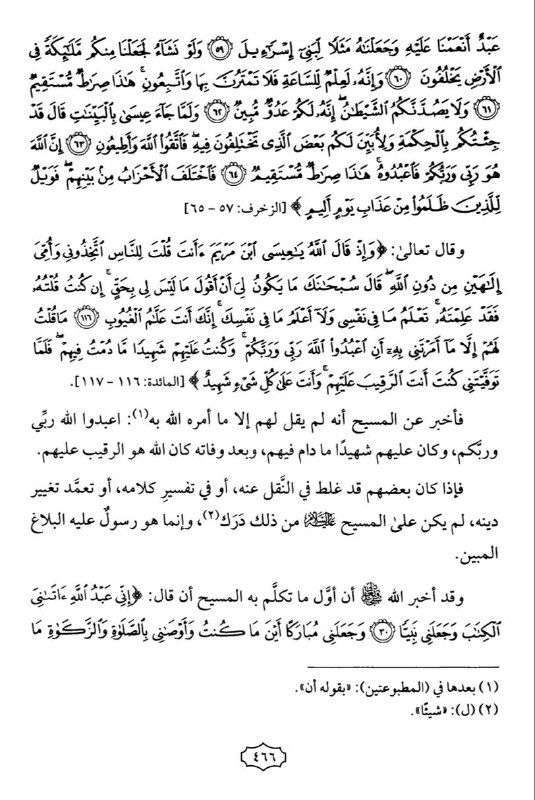 عَبْدٌ أَنْعَمْنَا عَلَيْهِ وَجَعَلْنَاهُ مَثَلًا لِبَنِي إِسْرَائِيلَ ﴿٥٩﴾ وَلَوْ نَشَاءُ لَجَعَلْنَا مِنكُم مَّلَائِكَةً فِي
الْأَرْضِ يَخْلُفُونَ ﴿٦٠﴾ وَإِنَّهُ لَعِلْمٌ لِلسَّاعَةِ فَلَا تَمْتَرُنَّ بِهَا وَاتَّبِعُونِ هَٰذَا صِرَاطٌ مُسْتَقِيمٌ
﴿٦١﴾ وَلَا يَصُدَّنَّكُمُ الشَّيْطَانُ إِنَّهُ لَكُمْ عَدُوٌّ مُبِينٌ ﴿٦٢﴾ وَلَمَّا جَاءَ عِيسَىٰ بِالْبَيِّنَاتِ قَالَ قَدْ
جِئْتُكُم بِالْحِكْمَةِ وَلِأُبَيِّنَ لَكُم بَعْضَ الَّذِي تَخْتَلِفُونَ فِيهِ فَاتَّقُوا اللَّهَ وَأَطِيعُونِ ﴿٦٣﴾ إِنَّ اللَّهَ
هُوَ رَبِّي وَرَبُّكُمْ فَاعْبُدُوهُ هَٰذَا صِرَاطٌ مُسْتَقِيمٌ ﴿٦٤﴾ فَاخْتَلَفَ الْأَحْزَابُ مِن بَيْنِهِمْ فَوَيْلٌ
لِلَّذِينَ ظَلَمُوا مِنْ عَذَابِ يَوْمٍ أَلِيمٍ﴾ [الزخرف: ٥٧ - ٦٥]
وقال تعالىٰ: ﴿وَإِذْ قَالَ اللَّهُ يَاعِيسَى ابْنَ مَرْيَمَ ءَأَنتَ قُلْتَ لِلنَّاسِ اتَّخِذُونِي وَأُمِّيَ
إِلَٰهَيْنِ مِن دُونِ اللَّهِ قَالَ سُبْحَانَكَ مَا يَكُونُ لِي أَنْ أَقُولَ مَا لَيْسَ لِي بِحَقٍّ إِن كُنتُ قُلْتُهُ
فَقَدْ عَلِمْتَهُ تَعْلَمُ مَا فِي نَفْسِي وَلَا أَعْلَمُ مَا فِي نَفْسِكَ إِنَّكَ أَنتَ عَلَّامُ الْغُيُوبِ ﴿١١٦﴾ مَا قُلْتُ
لَهُمْ إِلَّا مَا أَمَرْتَنِي بِهِ أَنِ اعْبُدُوا اللَّهَ رَبِّي وَرَبَّكُمْ وَكُنتُ عَلَيْهِمْ شَهِيدًا مَا دُمْتُ فِيهِمْ فَلَمَّا
تَوَفَّيْتَنِي كُنتَ أَنتَ الرَّقِيبَ عَلَيْهِمْ وَأَنتَ عَلَىٰ كُلِّ شَيْءٍ شَهِيدٌ﴾ [المائدة: ١١٦ - ١١٧].
فأخبر عن المسيح أنه لم يقل لهم إلا ما أمره الله به(١): اعبدوا الله ربِّي
وربَّكم، وكان عليهم شهيدًا ما دام فيهم، وبعد وفاته كان الله هو الرقيب عليهم.
فإذا كان بعضهم قد غلط في النَّقل عنه، أو في تفسيرِ كلامه، أو تعمَّد تغيير
دينه، لم يكن علىٰ المسيح عليه السلام من ذلك دَرَك(٢)، وإنما هو رسولٌ عليه البلاغ
المبين.
وقد أخبر الله ﷻ أن أوَّل ما تكلَّم به المسيح أن قال: ﴿إِنِّي عَبْدُ اللَّهِ ءَاتَانِيَ
الْكِتَابَ وَجَعَلَنِي نَبِيًّا ﴿٣٠﴾ وَجَعَلَنِي مُبَارَكًا أَيْنَ مَا كُنتُ وَأَوْصَانِي بِالصَّلَاةِ وَالزَّكَاةِ مَا
(١) بعدها في (المطبوعتين): «بقوله أن».
(٢) (ل): «شيئًا».
٤٦٦